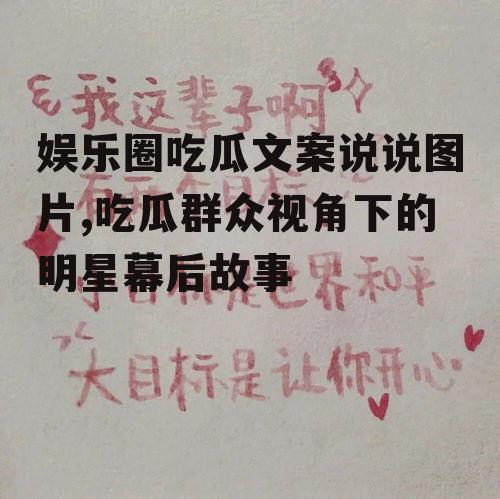 我这辈子啊
娱乐圈吃瓜文案说说图
片,吃瓜群众视角下的
明星幕后故事
小目标是世界和平
大目标是让你开心